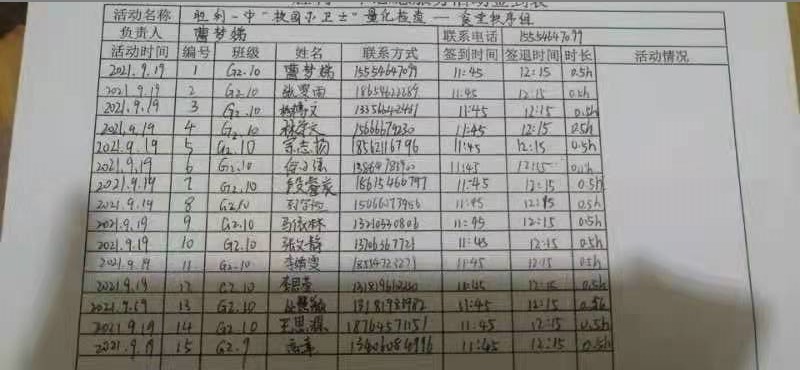 活动名称 胜利一中"校园小卫士"量化检查 — 食堂秩序组
负责人 曹梦娣 联系电话 15554647099
活动时间 编号 班级 姓名 联系方式 签到时间 签退时间 时长 活动情况
2021.9.19 1 G2.10 曹梦娣 15554647099 11:45 12:15 0.5h
2021.9.19 2 G2.10 11:45 12:15 0.5h
2021.9.19 3 G2.10 11:45 12:15 0.5h
2021.9.19 4 G2.10 15666679230 11:45 12:15 0.5h
2021.9.19 5 G2.10 宗志扬 18562116796 11:45 12:15 0.5h
2021.9.19 6 G2.10 11:45 12:15 0.5h
2021.9.19 7 G2.10 段馨炭 18615460797 11:45 12:15 0.5h
2021.9.19 8 G2.10 15066073956 11:45 12:15 0.5h
2021.9.19 9 G2.10 13210330806 11:45 12:15 0.5h
2021.9.19 10 G2.10 张文静 13706367721 11:45 12:15 0.5h
2021.9.19 11 G2.10 李婧雯 18554723271 11:45 12:15 0.5h
2021.9.19 12 G2.10 11:45 12:15 0.5h
2021.9.19 13 G2.10 13181983982 11:45 12:15 0.5h
2021.9.19 14 G2.10 王思源 18764571151 11:45 12:15 0.5h
2021.9.19 15 G2.9 13406084996 11:45 12:15 0.5h